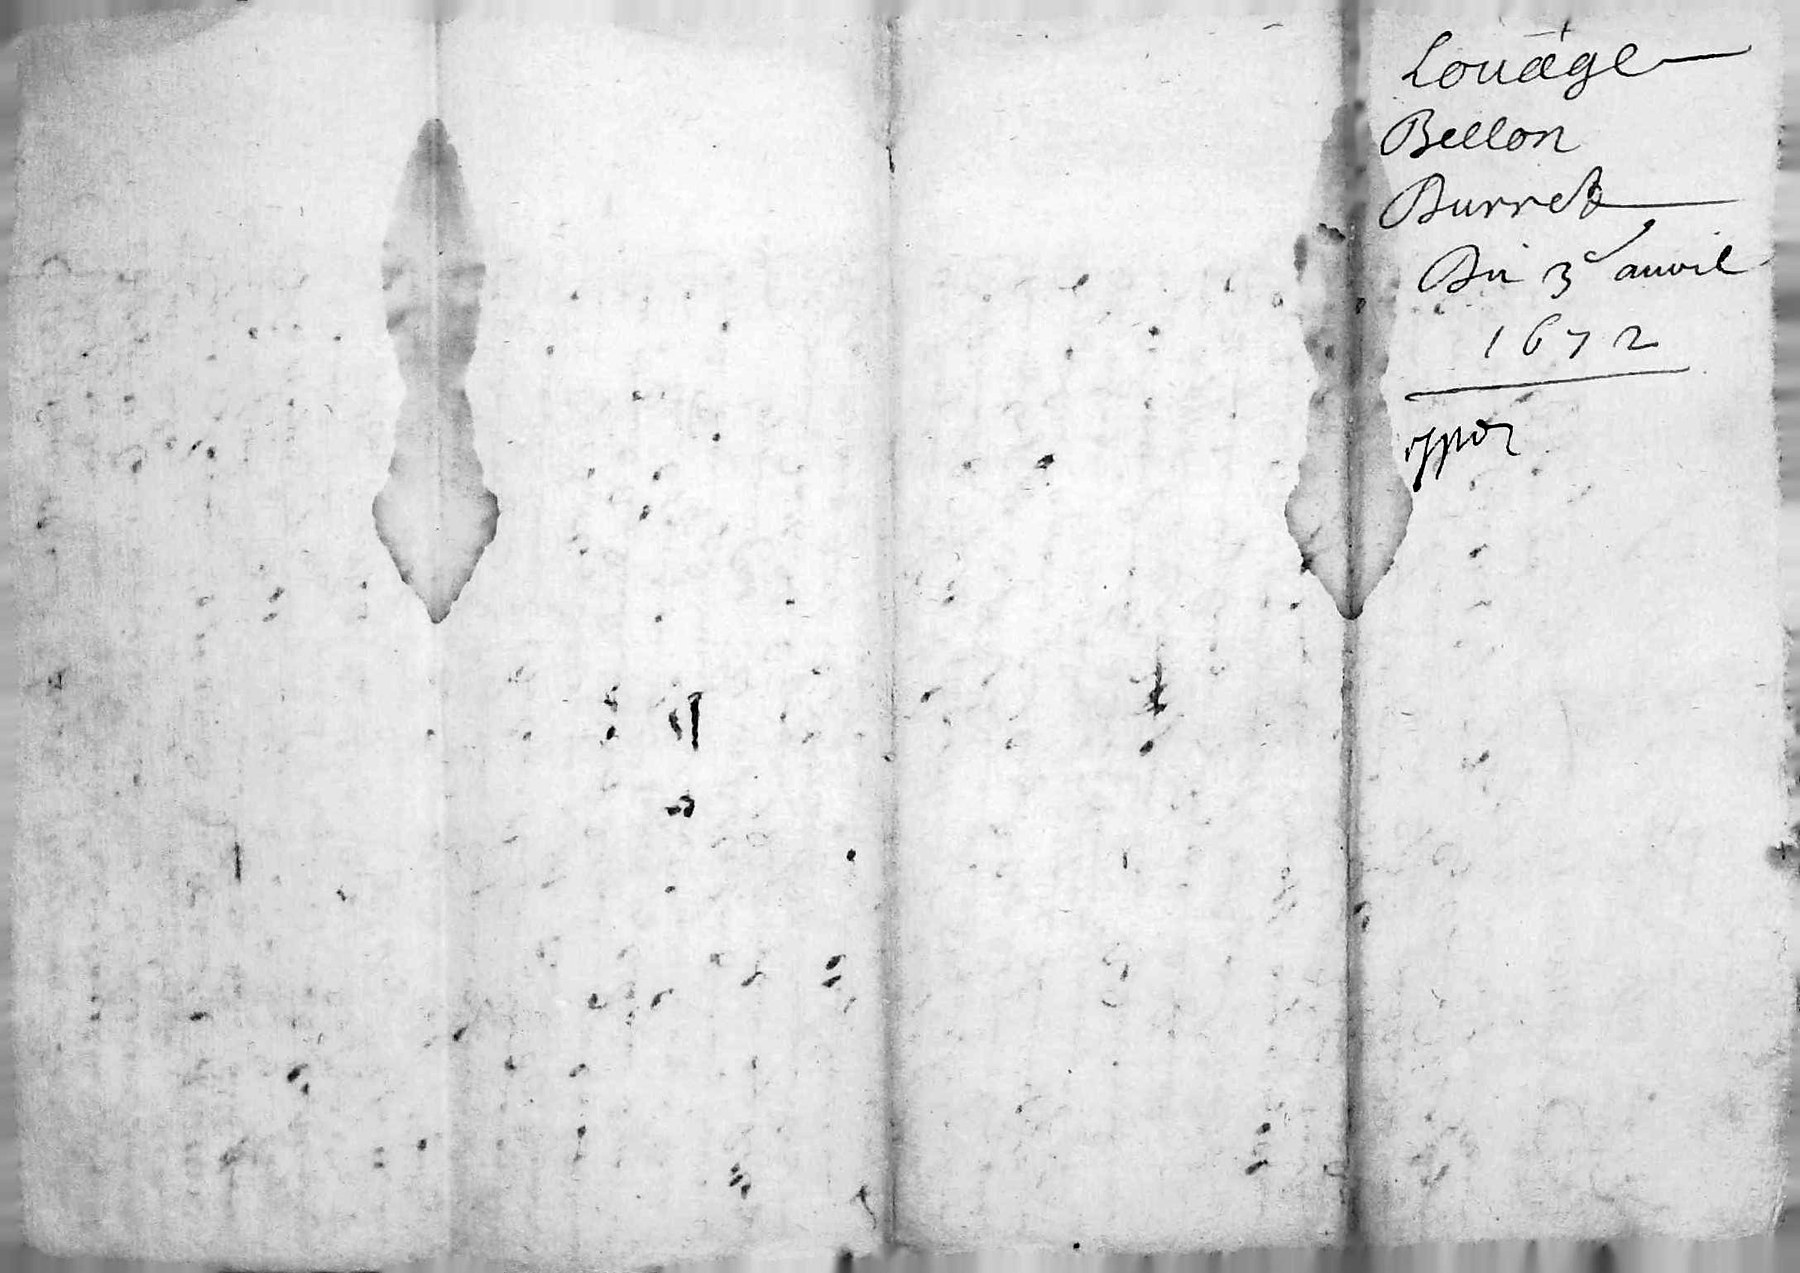 Louage
Bellon
Burret
Du 3e anvil
1672